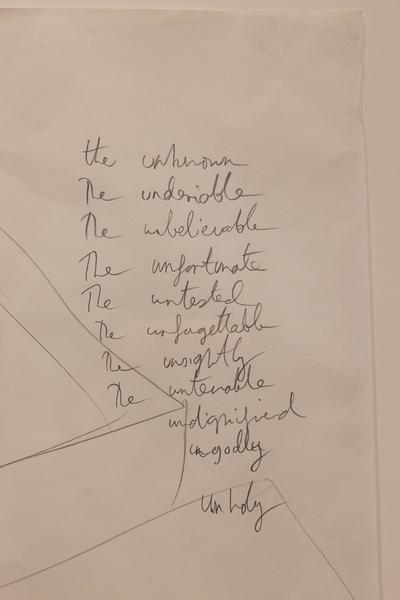 the unknown
The undeniable
The unbelievable
The unfortunate
The untested
The unfugettable
The unsightly
The untenable
undignified
ungodly
Unholy